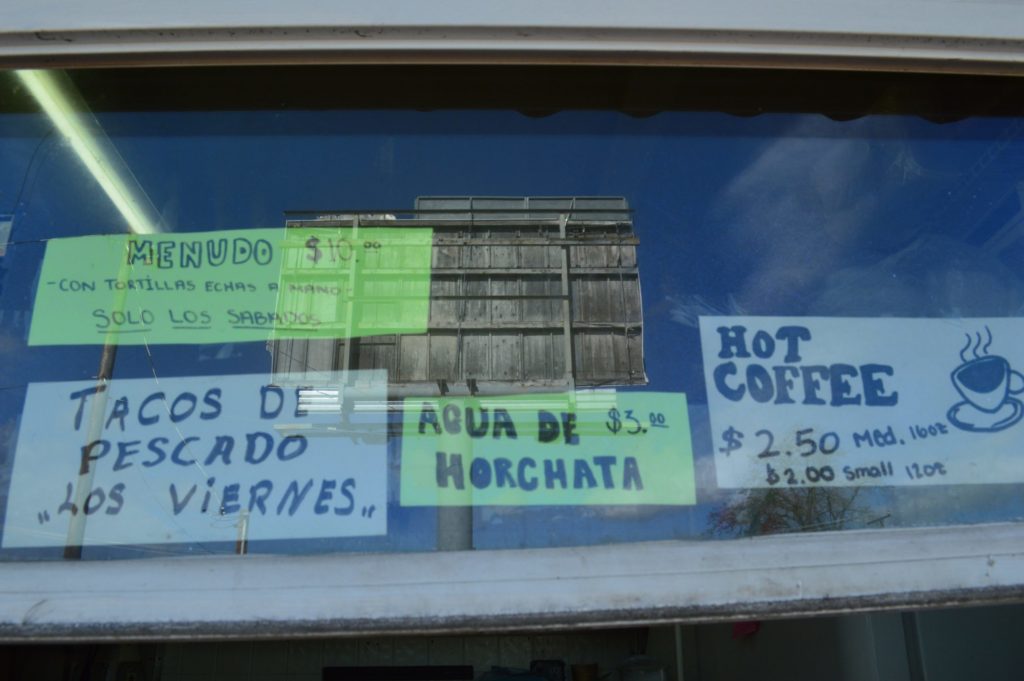 MENUDO $10.00
-CON TORTILLAS ECHAS A MANO-
SOLO LOS SABADOS
TACOS DE
PESCADO
"LOS VIERNES"
AGUA DE $3.00
HORCHATA
HOT
COFFEE
$2.50 MED. 16oz
$2.00 small 12oz